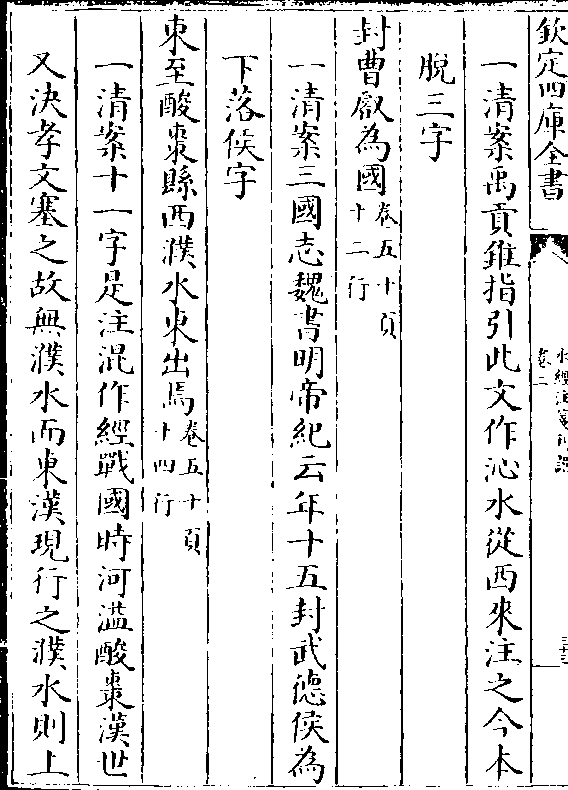 欽定四庫全書
水經注箋刊誤
卷二
三十三
一清案禹貢錐指引此文作沁水從西來注之今本
脫三字
封曹叡為國卷五十頁十二行
一清案三國志魏書明帝紀云年十五封武德侯為
下落侯字
東至酸棗縣西濮水東出焉卷五十頁十四行
一清案十一字是注混作經戰國時河溢酸棗漢世
又決孝文塞之故無濮水而東漢現行之濮水則上